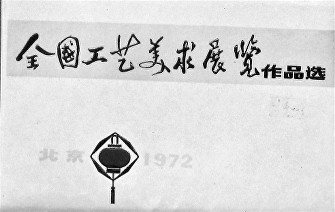 全國工艺美术展覽作品选
北京 1972